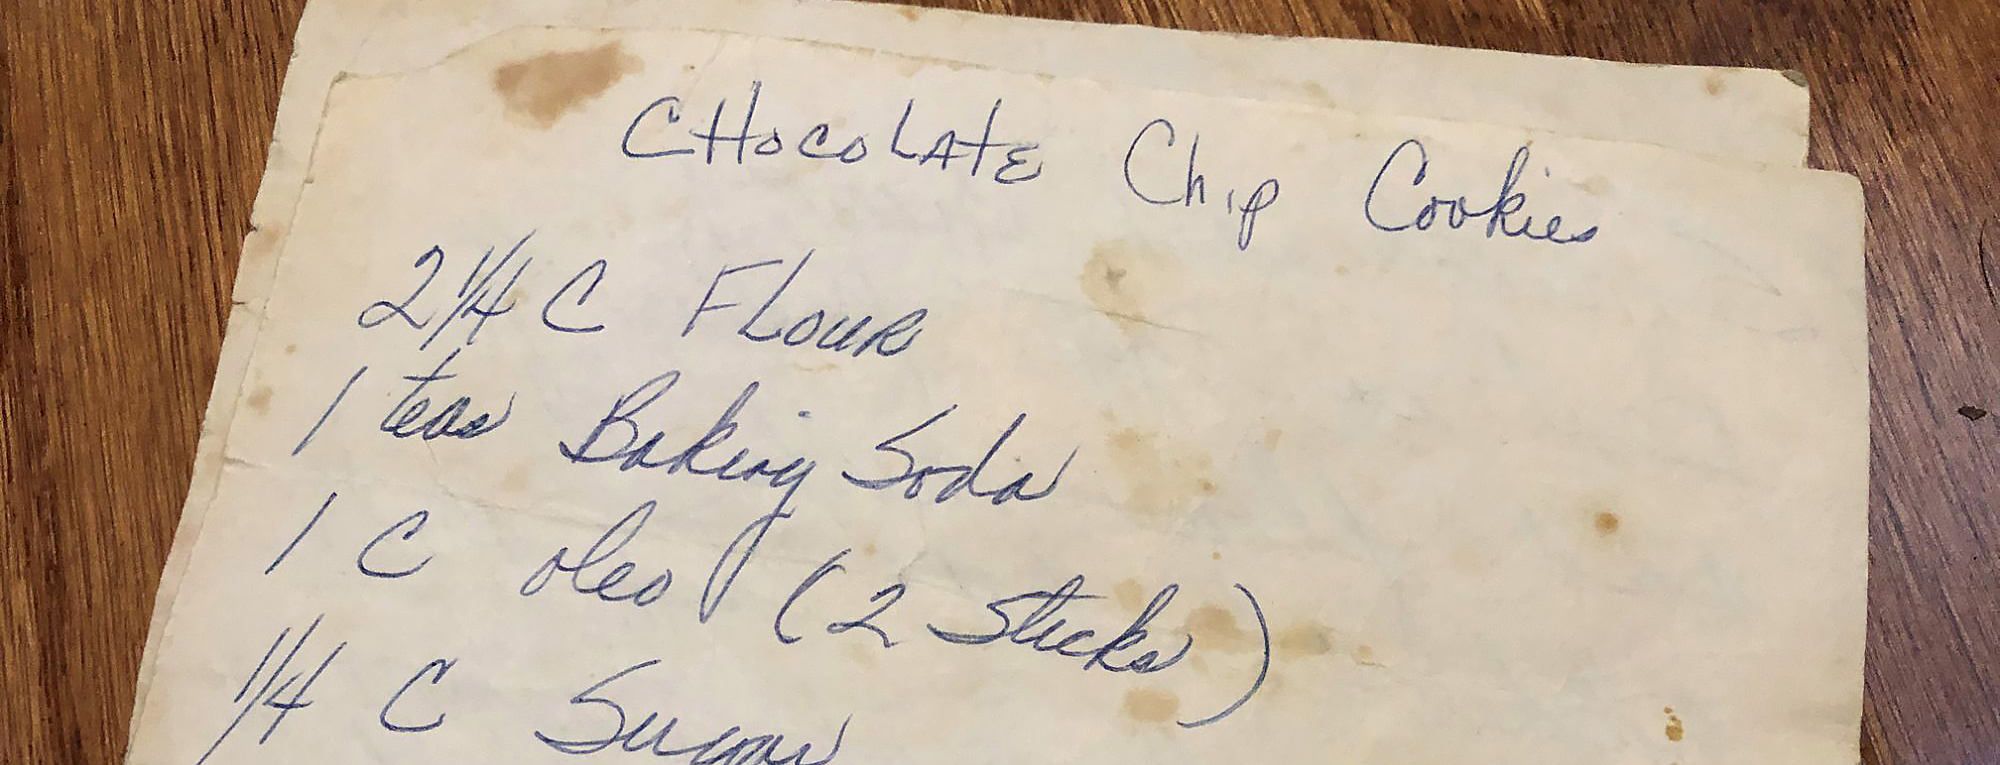 CHocoLAtE Chip Cookies
2 1/4 C FLouR
1 teas Baking Soda
1 C oleo (2 Sticks)
1/4 C Sugar